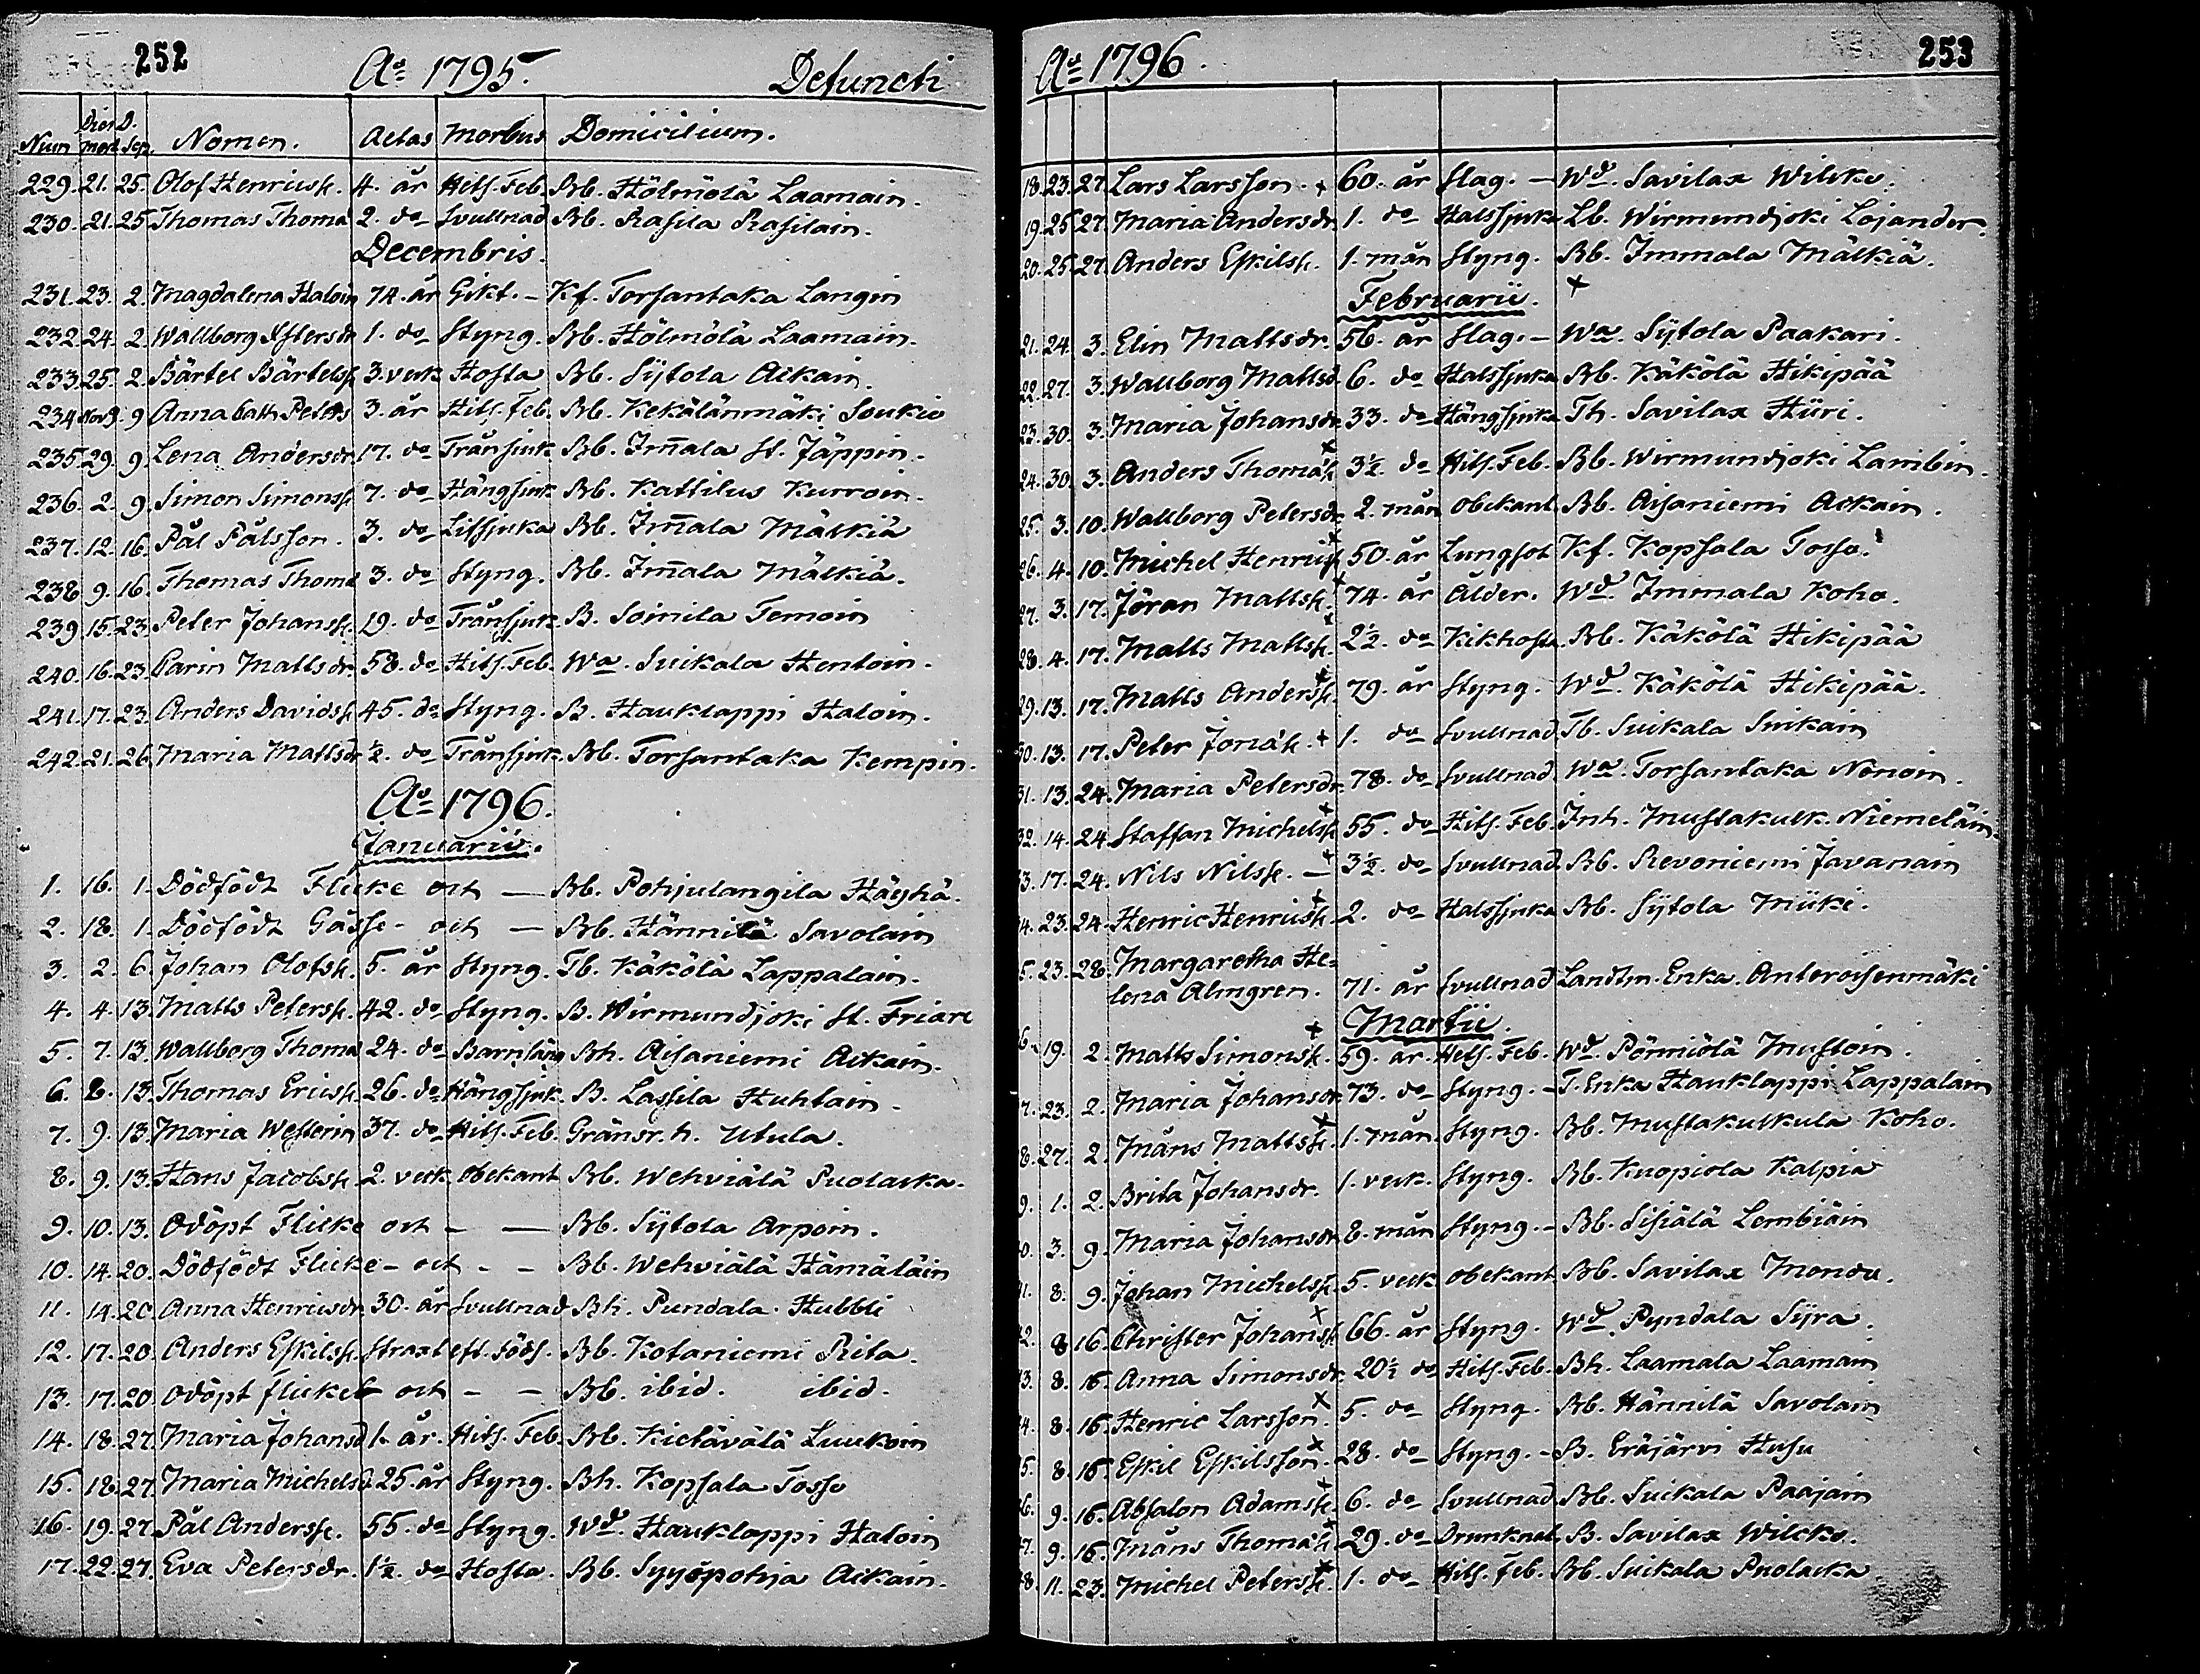 252
Ao 1795. Defuncti
Num Dies mort D. Sep. Nomen. Aetas Morbus Domicilium.
229. 21. 25. Olof Henricss. 4. år Hets. Feb. Bb. Hölmölä Laamain.
230. 21. 25. Thomas Thoma 2. do Svullnad Bb. Rasila Rasilain.
Decembris.
231. 23. 2. Magdalena Haloin 74. år Gikt. — Kf. Torsantaka Langin
232. 24. 2. Wallborg 1. do Styng. Bb. Hölmölä Laamain.
233. 25. 2. Bärtel Bärtelss. 3. veck Hosta Bb. Sÿtola Aikain.
234. Nov 9. 9. Anna Cath. Peters 3. år Hits. Feb. Bb. Kekälänmäki Soukio
235. 29. 9. Lena Andersdr. 17. do Transjuk Bb. Im̄ala St. Jäppin.
236. 2. 9. Simon Simonss. 7. do Hängsjuk Bb. Kattilus Kurroin.
237. 12. 16. Pål Pålsson. 3. do Bb. Im̄ala Mälkiä
238. 9. 16. Thomas Thoma 3. do Styng. Bb. Im̄ala Mälkiä.
239. 15. 23. Peter Johanss. 19. do Transjuk. B. Soinila Temoin
240. 16. 23. Carin Mattsdr. 58. do Hits. Feb. Wa. Suikala Hentoin.
241. 17. 23. Anders Davidss. 45. do Styng. B. Hauklappi Haloin.
242. 21. 26. Maria Mattsdr ½. do Transjuk. Bb. Torsantaka Kempin.
Ao 1796.
Januarii.
1. 16. 1. Dödfödt Flicke och — Bb. Pohjulangila Häyhä.
2. 18. 1. Dödfödt Gåsse - och — Bb. Hännilä Savolain
3. 2. 6. Johan Olofss. 5. år Styng. Tb. Käkölä Lappalain.
4. 4. 13. Matts Peterss. 42. do Styng. B. Wirmundjoki St. Friare
5. 7. 13. Wallborg Thoma 24. do Barnsäng Bh. Aisaniemi Aikain.
6. 8. 13. Thomas Ericss. 26. do Hängsjuk. B. Lassila Huhtain.
7. 9. 13. Maria Westerin 37. do Hits. Feb. Gränsr. h. Utula.
8. 9. 13. Hans Jacobss. 2. veck obekant Bb. Wehviälä Puolacka.
9. 10. 13. Odöpt Flicke och - — Bb. Sÿtola Arpoin.
10. 14. 20. Dödfödt Flicke - och - - Bb. Wehviälä Hämäläin
11. 14. 20. Anna Henricsdr 30. år Svullnad Bh. Pundala Hubbli
12. 17. 20. Anders Eskilss. straxt eft. föds. Bb. Kotaniemi Rita.
13. 17. 20. Odöpt flickeb och - - Bb. ibid. ibid.
14. 18. 27. Maria Johansd 1. år. Hits. Feb. Bb. Kietävälä Luukoin
15. 18. 27. Maria Michelsd 25. år Styng. Bh. Kopsala Tosso
16. 19. 27. Pål Anderss. 55. do Styng. Wd. Hauklappi Haloin
17. 22. 27. Eva Petersdr. 1½. do Hosta. Bb. Syyspohja Aikain.
253
Ao 1796.
18. 23. 27. Lars Larsson. + 60. år Slag. — Wd. Savilax Wilcko.
19. 25. 27. Maria Andersdr. 1. do Halssjuka Lb. Wirmundjoki Lojander.
20. 25. 27. Anders Eskilss. 1. mån Styng. Bb. Immala Mälkiä.
Februarii. +
21. 24. 3. Elin Mattsdr. 56. år Slag. — Wa. Sÿtola Paakari.
22. 27. 3. Wallborg Mattsd. 6. do Halssjuka Bb. Käkölä Hikipää
23. 30. 3. Maria Johansdr 33. do Hängsjuka Th. Savilax Hüri.
24. 30. 3. Anders Thomas. 3½. do Hits. Feb. Bb. Wirmundjoki Lambin.
25. 3. 10. Wallborg Petersdr 2. mån obekant Bb. Aisaniemi Aikain.
26. 4. 10. Michel Henricss 50. år Lungsot Kf. Kopsala Tosso.
27. 3. 17. Jöran Mattss. 74. år Ålder. Wd. Immala Koho.
28. 4. 17. Matts Mattss. 2½. do Kikhosta. Bb. Käkölä Hikipää
29. 13. 17. Matts Anderss. 79. år Styng. Wd. Käkölä Hikipää.
30. 13. 17. Peter Jonäss. + 1. do Svullnad Tb. Suikala Suikain
31. 13. 24. Maria Petersdr. 78. do Svullnad Wa. Torsantaka Nenoin.
32. 14. 24. Staffan Michelss. 55. do Hits. Feb. Inh. Mustakulk. Niemeläin.
33. 17. 24. Nils Nilss. — 3½. do Svullnad Bb. Revoniemi Javanain
34. 23. 24. Henric Henricss. 2. do Halssjuka Bb. Sÿtola Müki.
5. 23. 28. Margaretha He-
lena Almgren. 71. år Svullnad Landtm. Enka. Anteroisenmäki
+ Martii.
6. 19. 2. Matts Simonss. 59. år. Hets. Feb. Wd. Pönniölä Mustoin.
7. 23. 2. Maria Johansdr 73. do Styng. — T. Enka Hauklappi Lappalain
8. 27. 2. Måns Mattss. 1. mån Styng. Bb. Mustakulkula Koho.
9. 1. 2. Brita Johansdr. 1. veck. Styng. Bb. Kuopiola Kalpia
40. 3. 9. Maria Johansdr. 8. mån Styng. — Bb. Sisiälä Lembiäin
41. 8. 9. Johan Michelss. 5. veck obekant Bb. Savilax Mondu.
42. 8 16. Christer Johanss. 66. år Styng. Wd. Pyndala Sÿra.
43. 8. 16. Anna Simonsdr. 20½ do Hits. Feb. Bh. Laamala Laamain
44. 8. 16. Henric Larsson. 5. do Styng. Bb. Hännilä Savolain
45. 8. 16. Eskil Eskilsson. 28. do Styng. — B. Eräjärvi Husu
46. 9. 16. Absalon Adamss. 6. do Svullnad Bb. Suikala Paajain
47. 9. 16. Måns Thomas. 29. do Drunknat B. Savilax Wilcko.
48. 11. 23. Michel Peterss. 1. do Hits. Feb. Bb. Suikala Puolacka